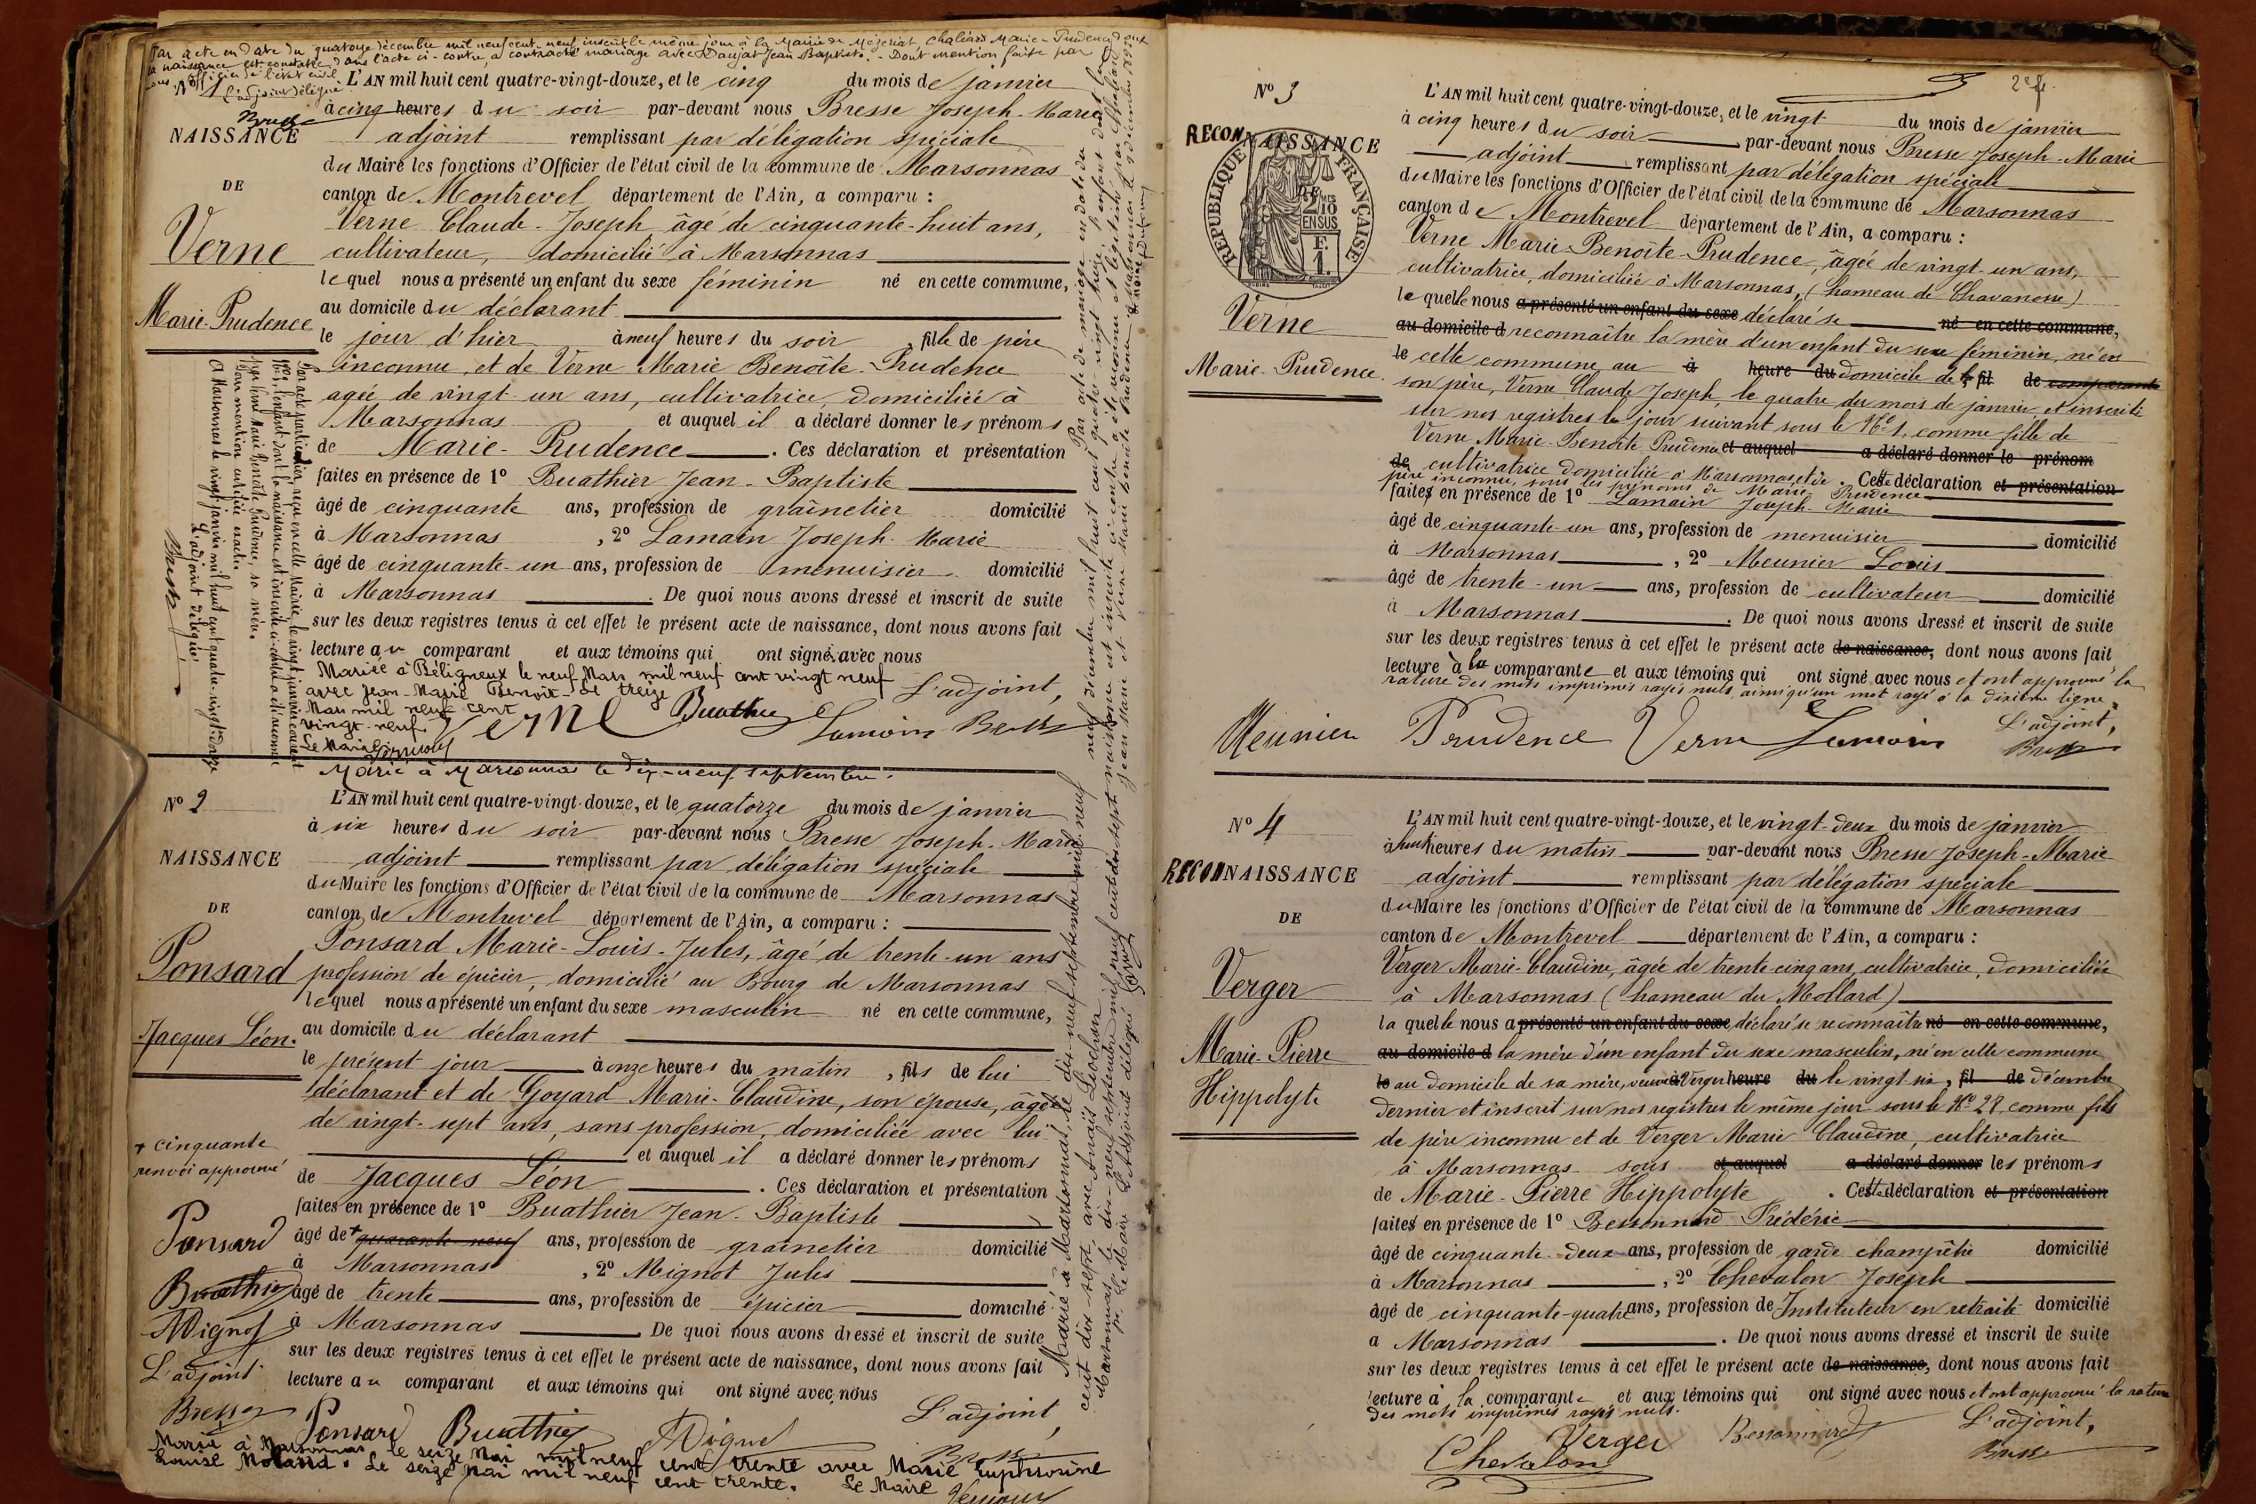 Par acte en date du quatorze décembre mil neuf cent neuf, inscrit le même jour à la Mairie de Mézériat, Chaliard Marie-Prudence dont
la naissance est constatée dans l'acte ci-contre, a contracté mariage avec Daujat Jean Baptiste. - Dont mention faite par
nous officier de l'état civil.
L'adjoint délégué
Bresse
N° 1
NAISSANCE
DE
Verne
Marie-Prudence
L'AN mil huit cent quatre-vingt-douze, et le cinq du mois de janvier
à cinq heures du soir par-devant nous Bresse Joseph-Marie
adjoint remplissant par délégation spéciale
du Maire les fonctions d'Officier de l'état civil de la commune de Marsonnas
canton de Montrevel département de l'Ain, a comparu :
Verne Claude-Joseph âgé de cinquante-huit ans,
cultivateur, domicilié à Marsonnas
lequel nous a présenté un enfant du sexe féminin né en cette commune,
au domicile du déclarant
le jour d'hier à neuf heures du soir, fille de père
inconnu, et de Verne Marie Benoîte-Prudence
agée de vingt-un ans, cultivatrice, domiciliée à
Marsonnas et auquel il a déclaré donner les prénoms
de Marie-Prudence. Ces déclaration et présentation
faites en présence de 1° Buathier Jean-Baptiste
âgé de cinquante ans, profession de grainetier domicilié
à Marsonnas, 2° Lamain Joseph-Marie
âgé de cinquante-un ans, profession de menuisier domicilié
à Marsonnas. De quoi nous avons dressé et inscrit de suite
sur les deux registres tenus à cet effet le présent acte de naissance, dont nous avons fait
lecture au comparant et aux témoins qui ont signé avec nous
L'adjoint,
Mariée à Béligneux le neuf Mars mil neuf cent vingt neuf
avec Jean-Marie Benoît. Le treize
Mars mil neuf cent
vingt-neuf
Le Maire
Verne Buathier Lamain Bresse
Par acte particulier, reçu en cette Mairie, le vingt janvier courant
N° 3, l'enfant dont la naissance est inscrite ci-contre a été reconnue
par Verne Marie Benoîte Prudence, sa mère.
Dont mention certifiée exacte
A Marsonnas le vingt janvier mil huit cent quatre-vingt-douze
L'adjoint délégué
Bresse
Marié à Marsonnas le dix-neuf septembre
N° 2
NAISSANCE
DE
Ponsard
Jacques Léon.
L'AN mil huit cent quatre-vingt-douze, et le quatorze du mois de janvier
à six heures du soir par-devant nous Bresse Joseph-Marie
adjoint remplissant par délégation spéciale
du Maire les fonctions d'Officier de l'état civil de la commune de Marsonnas
canton de Montrevel département de l'Ain, a comparu :
Ponsard Marie-Louis-Jules, âgé de trente-un ans
profession de épicier, domicilié au Bourg de Marsonnas
lequel nous a présenté un enfant du sexe masculin né en cette commune,
au domicile du déclarant
le présent jour à onze heures du matin, fils de lui
déclarant et de Goyard Marie-Claudine, son épouse, âgée
de vingt-sept ans, sans profession, domiciliée avec lui
et auquel il a déclaré donner les prénoms
de Jacques Léon. Ces déclaration et présentation
faites en présence de 1° Buathier Jean-Baptiste
âgé de + quarante neuf ans, profession de grainetier domicilié
à Marsonnas, 2° Mignot Jules
âgé de trente ans, profession de épicier domicilié
à Marsonnas. De quoi nous avons dressé et inscrit de suite
sur les deux registres tenus à cet effet le présent acte de naissance, dont nous avons fait
lecture au comparant et aux témoins qui ont signé avec nous
L'adjoint,
+ cinquante
renvoi approuvé
Ponsard
Buathier
Mignot
L'adjoint
Bresse
Ponsard Buathier Mignot Bresse
Marié à Marsonnas le seize Mai mil neuf cent trente avec Marie Euphrosine
Louise Moland. Le seize Mai mil neuf cent trente. Le Maire
2e f.
N° 3
RECONNAISSANCE
RÉPUBLIQUE FRANÇAISE
2/10 EN SUS
F. 1.
Verne
Marie-Prudence
L'AN mil huit cent quatre-vingt-douze, et le vingt du mois de janvier
à cinq heures du soir par-devant nous Bresse Joseph-Marie
adjoint remplissant par délégation spéciale
du Maire les fonctions d'Officier de l'état civil de la commune de Marsonnas
canton de Montrevel département de l'Ain, a comparu :
Verne Marie-Benoîte-Prudence, âgée de vingt-un ans,
cultivatrice, domiciliée à Marsonnas, (hameau de Chavanosse)
laquelle nous a présenté un enfant du sexe déclaré se né en cette commune,
au domicile d reconnaître la mère d'un enfant du sexe féminin, né en
le cette commune au à heure du domicile de fil de comparant
son père, Verne Claude Joseph, le quatre du mois de janvier, et inscrite
sur nos registres le jour suivant sous le N° 1, comme fille de
Verne Marie-Benoîte Prudence et auquel a déclaré donner le prénom
de cultivatrice domiciliée à Marsonnas, et de . Cette déclaration et présentation
père inconnu, sous les prénoms de Marie Prudence
faites en présence de 1° Lamain Joseph-Marie
âgé de cinquante-un ans, profession de menuisier domicilié
à Marsonnas, 2° Meunier Louis
âgé de trente-un ans, profession de cultivateur domicilié
à Marsonnas. De quoi nous avons dressé et inscrit de suite
sur les deux registres tenus à cet effet le présent acte de naissance, dont nous avons fait
lecture à la comparante et aux témoins qui ont signé avec nous et ont approuvé la
rature des mots imprimés rayés nuls, ainsi qu'un mot rayé à la dixième ligne.
L'adjoint,
Meunier Prudence Verne Lamain Bresse
N° 4
RECONNAISSANCE
DE
Verger
Marie-Pierre
Hippolyte
L'AN mil huit cent quatre-vingt-douze, et le vingt-deux du mois de janvier
à huit heures du matin par-devant nous Bresse Joseph-Marie
adjoint remplissant par délégation spéciale
du Maire les fonctions d'Officier de l'état civil de la commune de Marsonnas
canton de Montrevel département de l'Ain, a comparu :
Verger Marie-Claudine, âgée de trente-cinq ans, cultivatrice, domiciliée
à Marsonnas (hameau du Mollard)
laquelle nous a présenté un enfant du sexe déclaré se reconnaître né en cette commune,
au domicile d la mère d'un enfant du sexe masculin, né en cette commune
le au domicile de sa mère, veuve à Verger heure du le vingt six, fil de décembre
dernier et inscrit sur nos registres le même jour sous le N° 28 comme fils
de père inconnu et de Verger Marie Claudine, cultivatrice
à Marsonnas sous et auquel a déclaré donner les prénoms
de Marie-Pierre Hippolyte. Cette déclaration et présentation
faites en présence de 1° Bessonnard Frédéric
âgé de cinquante-deux ans, profession de garde champêtre domicilié
à Marsonnas, 2° Chevalon Joseph
âgé de cinquante-quatre ans, profession de Instituteur en retraite domicilié
à Marsonnas. De quoi nous avons dressé et inscrit de suite
sur les deux registres tenus à cet effet le présent acte de naissance, dont nous avons fait
lecture à la comparante et aux témoins qui ont signé avec nous et ont approuvé la rature
des mots imprimés rayés nuls.
L'adjoint,
Chevalon Verger Bessonnard Bresse